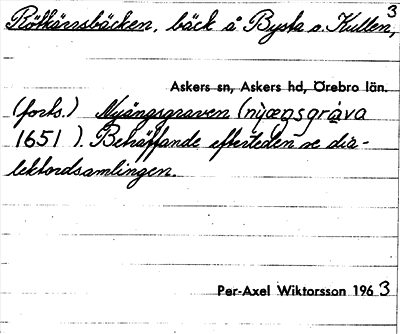 3
Rötkärrsbäcken, bäck å Bysta o. Kullen,
Askers sn, Askers hd, Örebro län.
(forts.) Nyängsgraven (nỳæŋsgràva
1651). Beträffande efterleden se dia-
lektordsamlingen.
Per-Axel Wiktorsson 1963